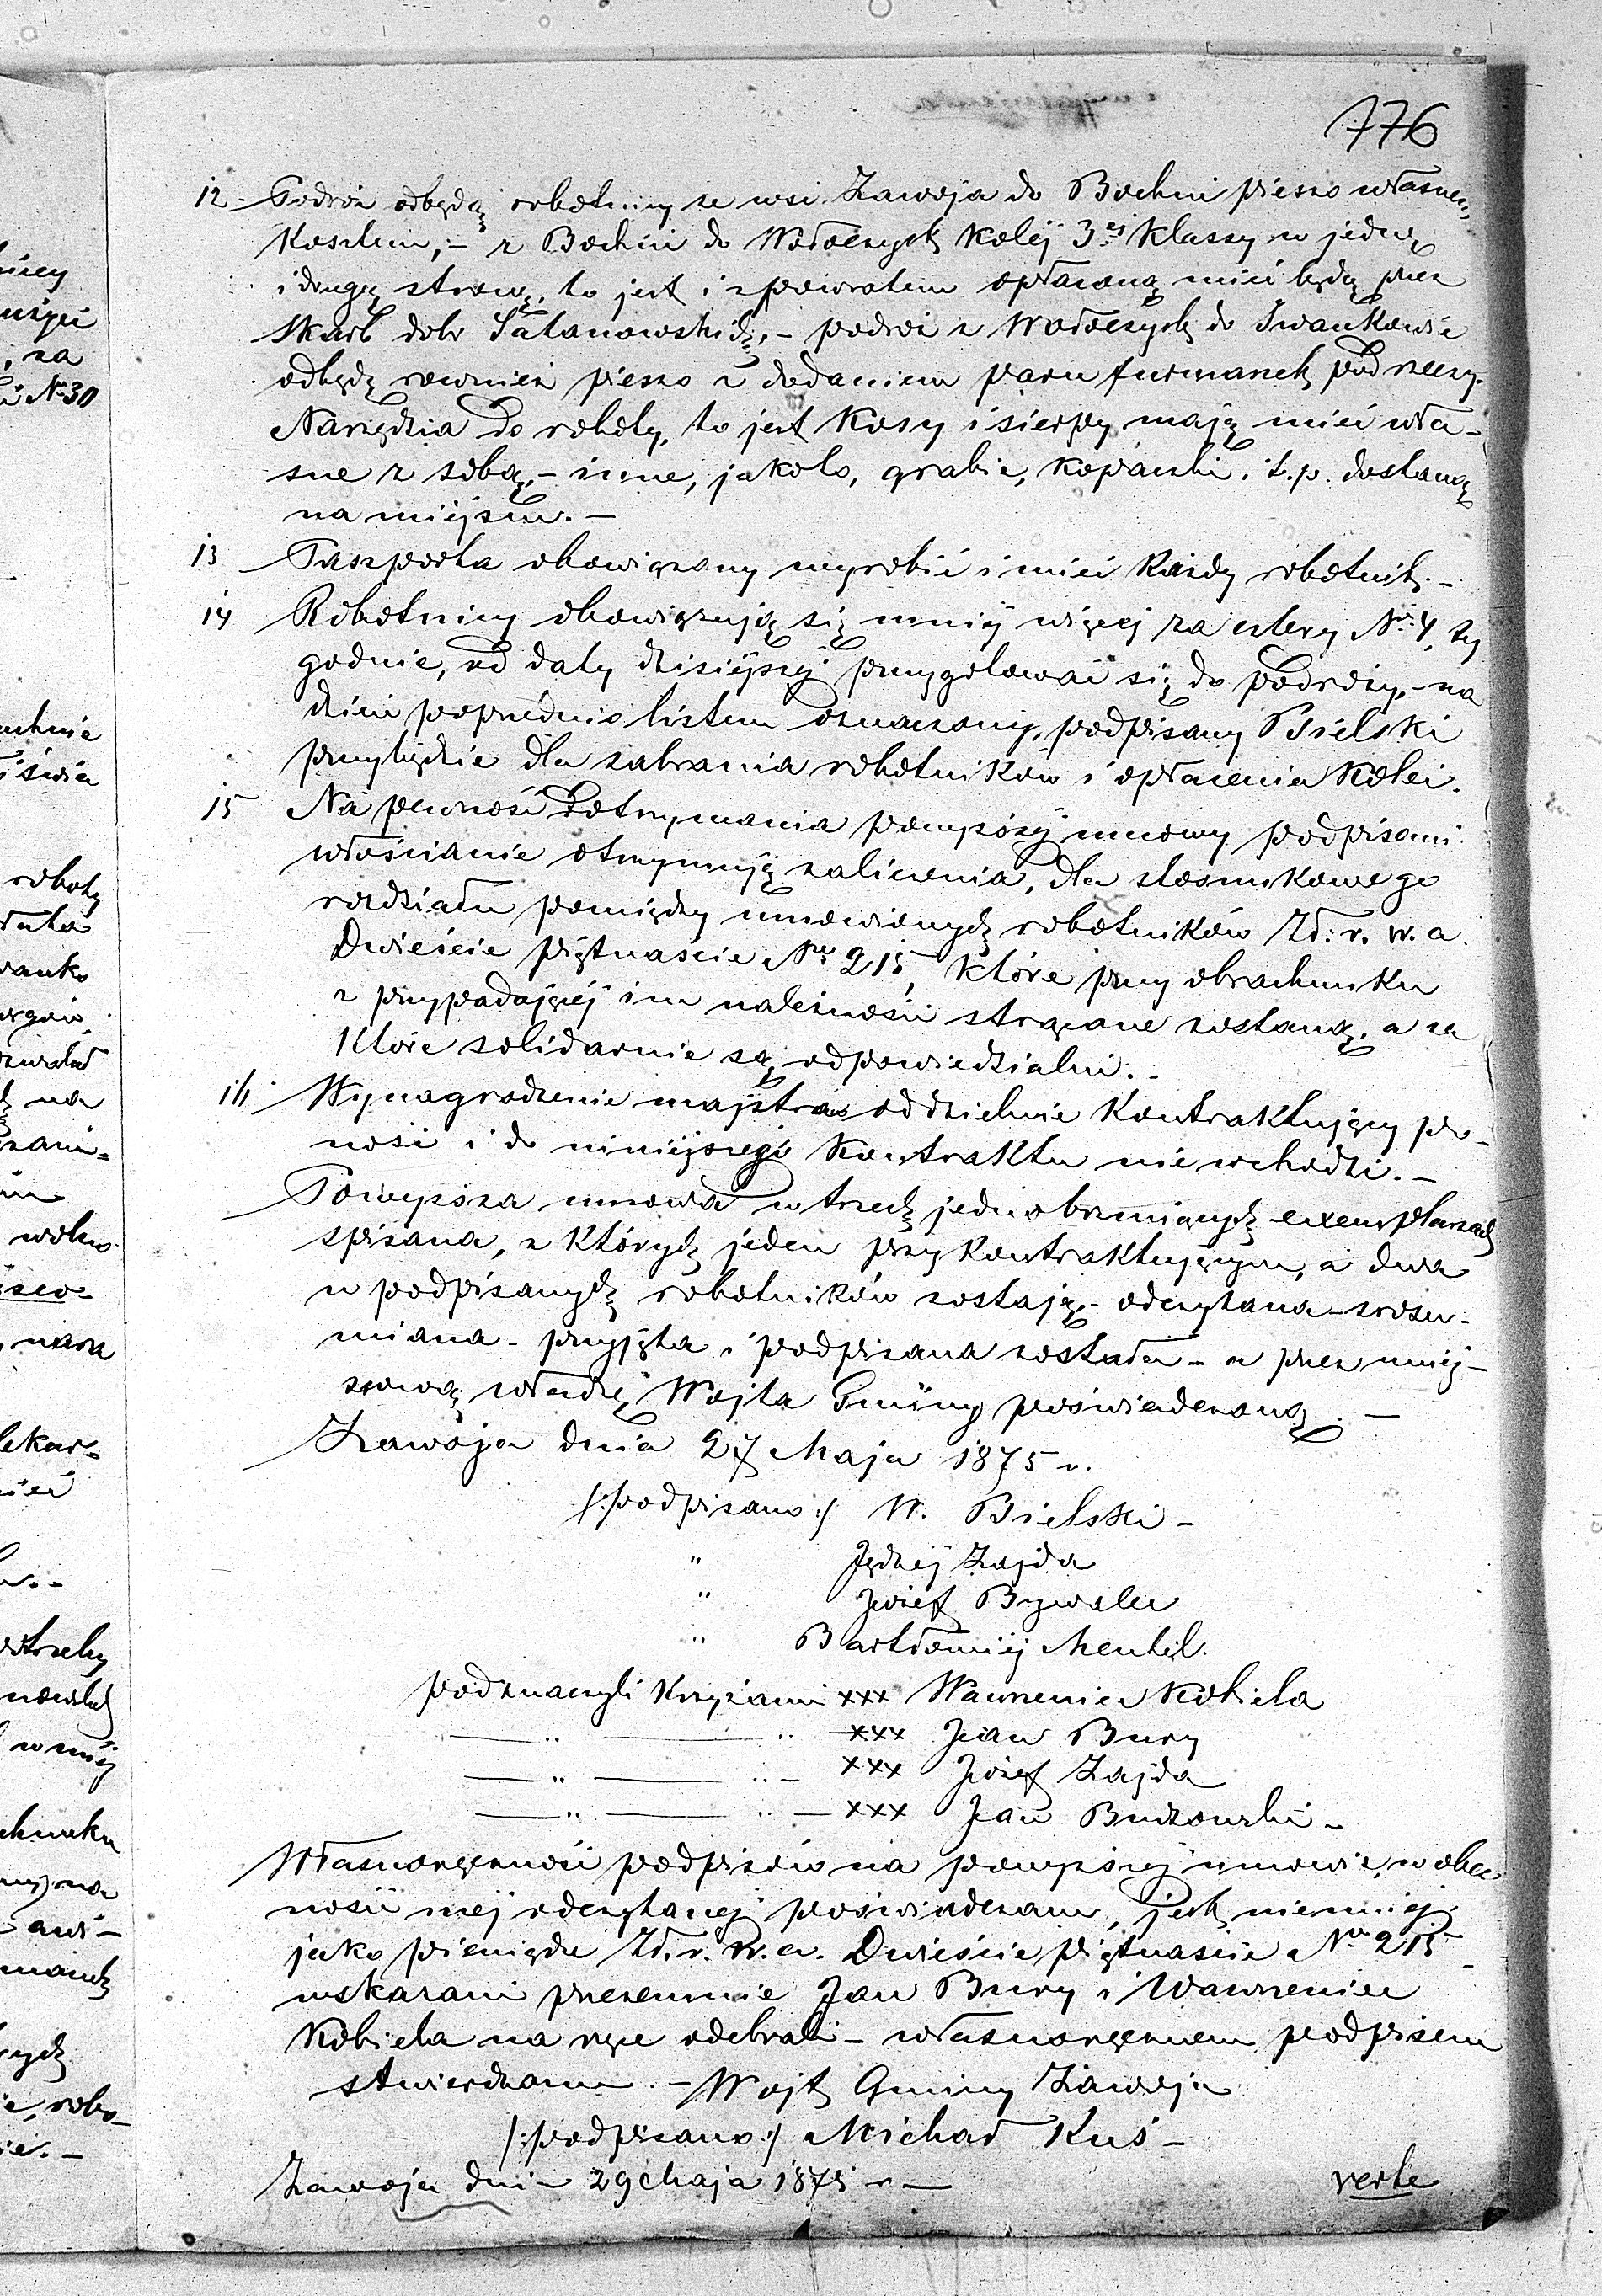 776
12. Podróż odbędą robotnicy ze wsi Zawoja do Bochni pieszo własnem
Kosztem, – z Bochni do Wołoczysk Kolej 3ej Klassy w jedną
i drugą stronę, to jest i z powrotem opłaconą mieć będą przez
Skarb dobr Satanowskich, – podróż z Wołoczysk do Iwankowic
odbędą rownież pieszo z dodaniem paru furmanek pod rzeczy.
Narzędzia do roboty, to jest Kosy i sierpy mają mieć wła-
sne z sobą, – inne, jakoto, grabie, kopaczki i t.p. dostaną
na miejscu. –
13 Paszporta obowiązany wyrobić i mieć Każdy robotnik. –
14 Robotnicy obowiązują się mniej więcej za cztery No 4, ty
godnie, od daty dzisiejszej przygotować się do podroży, – na
dzień poprzednio listem oznaczony, podpisany Bielski
przybędzie dla zabrania robotników i opłacenia Kolei.
15 Na pewność dotrzymania powyższej umowy podpisani
włościanie otrzymują zaliczenia, dla stosunkowego
rozdziału pomiędzy umowionych robotników Zł: r. w. a.
Dwieście piętnaście No 215, które przy obrachunku
z przypadającej im należności strącane zostaną, a za
Które solidarnie są odpowiedzialni. –
16 Wynagrodzenie majstra oddzielnie Kontraktujący po-
nosi i do niniejszego Kontraktu nie wchodzi. –
Powyższa umowa w trzech jednobrzmiących exemplarzach
spisana, z Których jeden przy Kontraktującym, a dwa
u podpisanych robotników zostają – odczytana – zrozu-
miana – przyjęta i podpisana została – a przez miej-
scową władzę Wojta Gminy poświadczoną. –
Zawoja dnia 27 Maja 1875 r.
/:podpisano:/ W. Bielski –
" Jędrzej Zajda
" Józef Bywalec
" Bartłomiej Mentel.
podznaczyli Krzyżami xxx Wawrzeniec Kobiela
— " — " — xxx Jan Bury
— " — " — xxx Józef Zajda
— " — " — xxx Jan Budzowski –
Własnoręczność podpisów na powyższej umowie, w obec-
ności mej odczytanej poświadczam, jak niemniej
jako pieniądze Zł. r. w. a. Dwieście piętnaście No 215 –
wskazani przezemnie Jan Bury i Wawrzeniec
Kobiela na ręce odebrali – własnoręcznem podpisem
stwierdzam. – Wojt Gminy Zawoja
/:podpisano:/ Michał Kuś –
Zawoja dnia 29 Maja 1875 r. —
verte